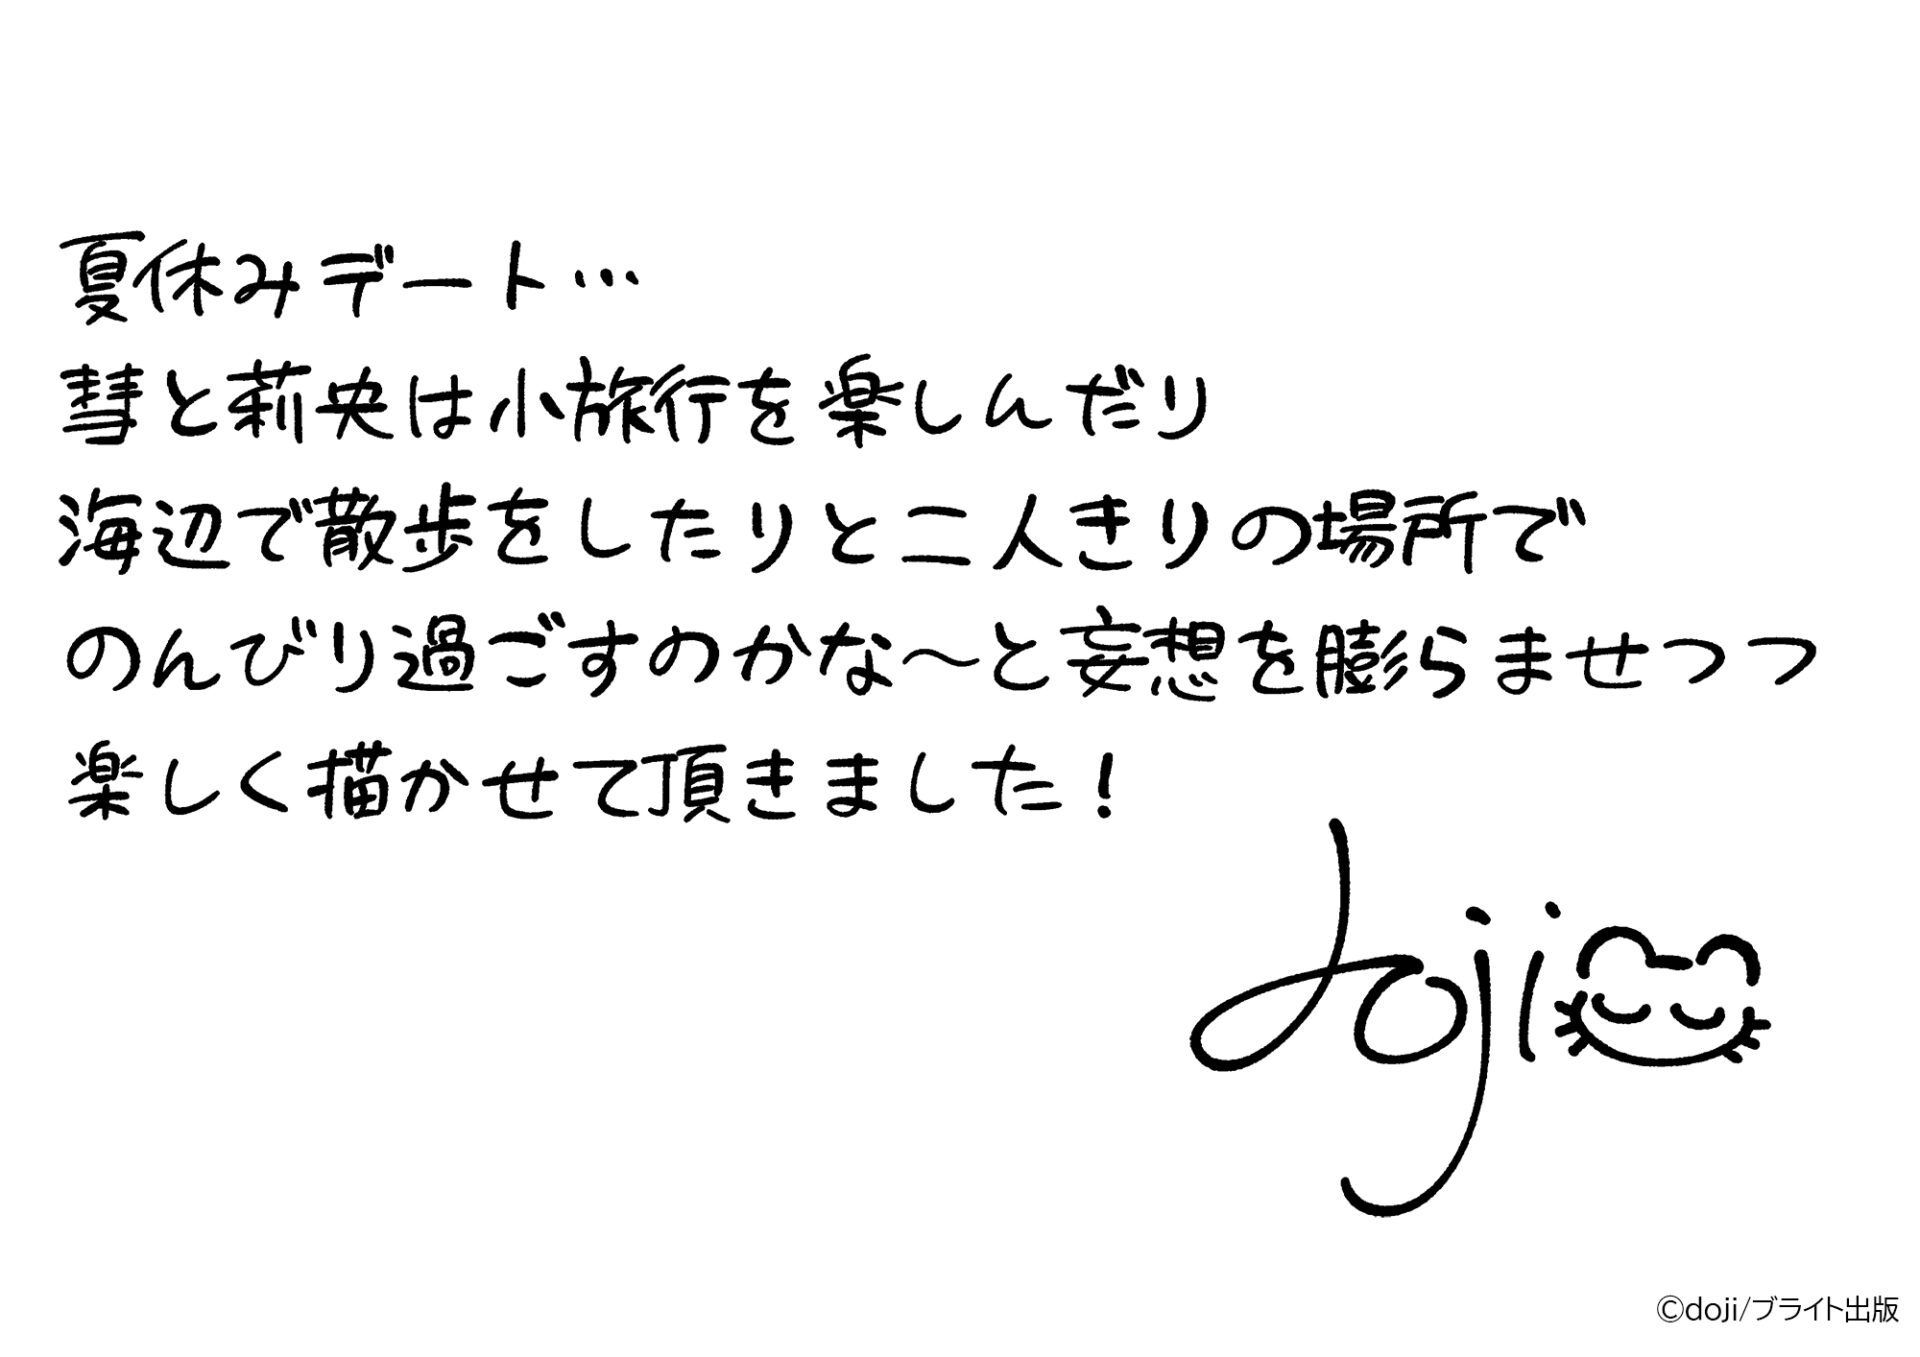 夏休みデート…
彗と莉央は小旅行を楽しんだり
海辺で散歩をしたりと二人きりの場所で
のんびり過ごすのかな〜と妄想を膨らませつつ
楽しく描かせて頂きました！
doji
©doji/ブライト出版